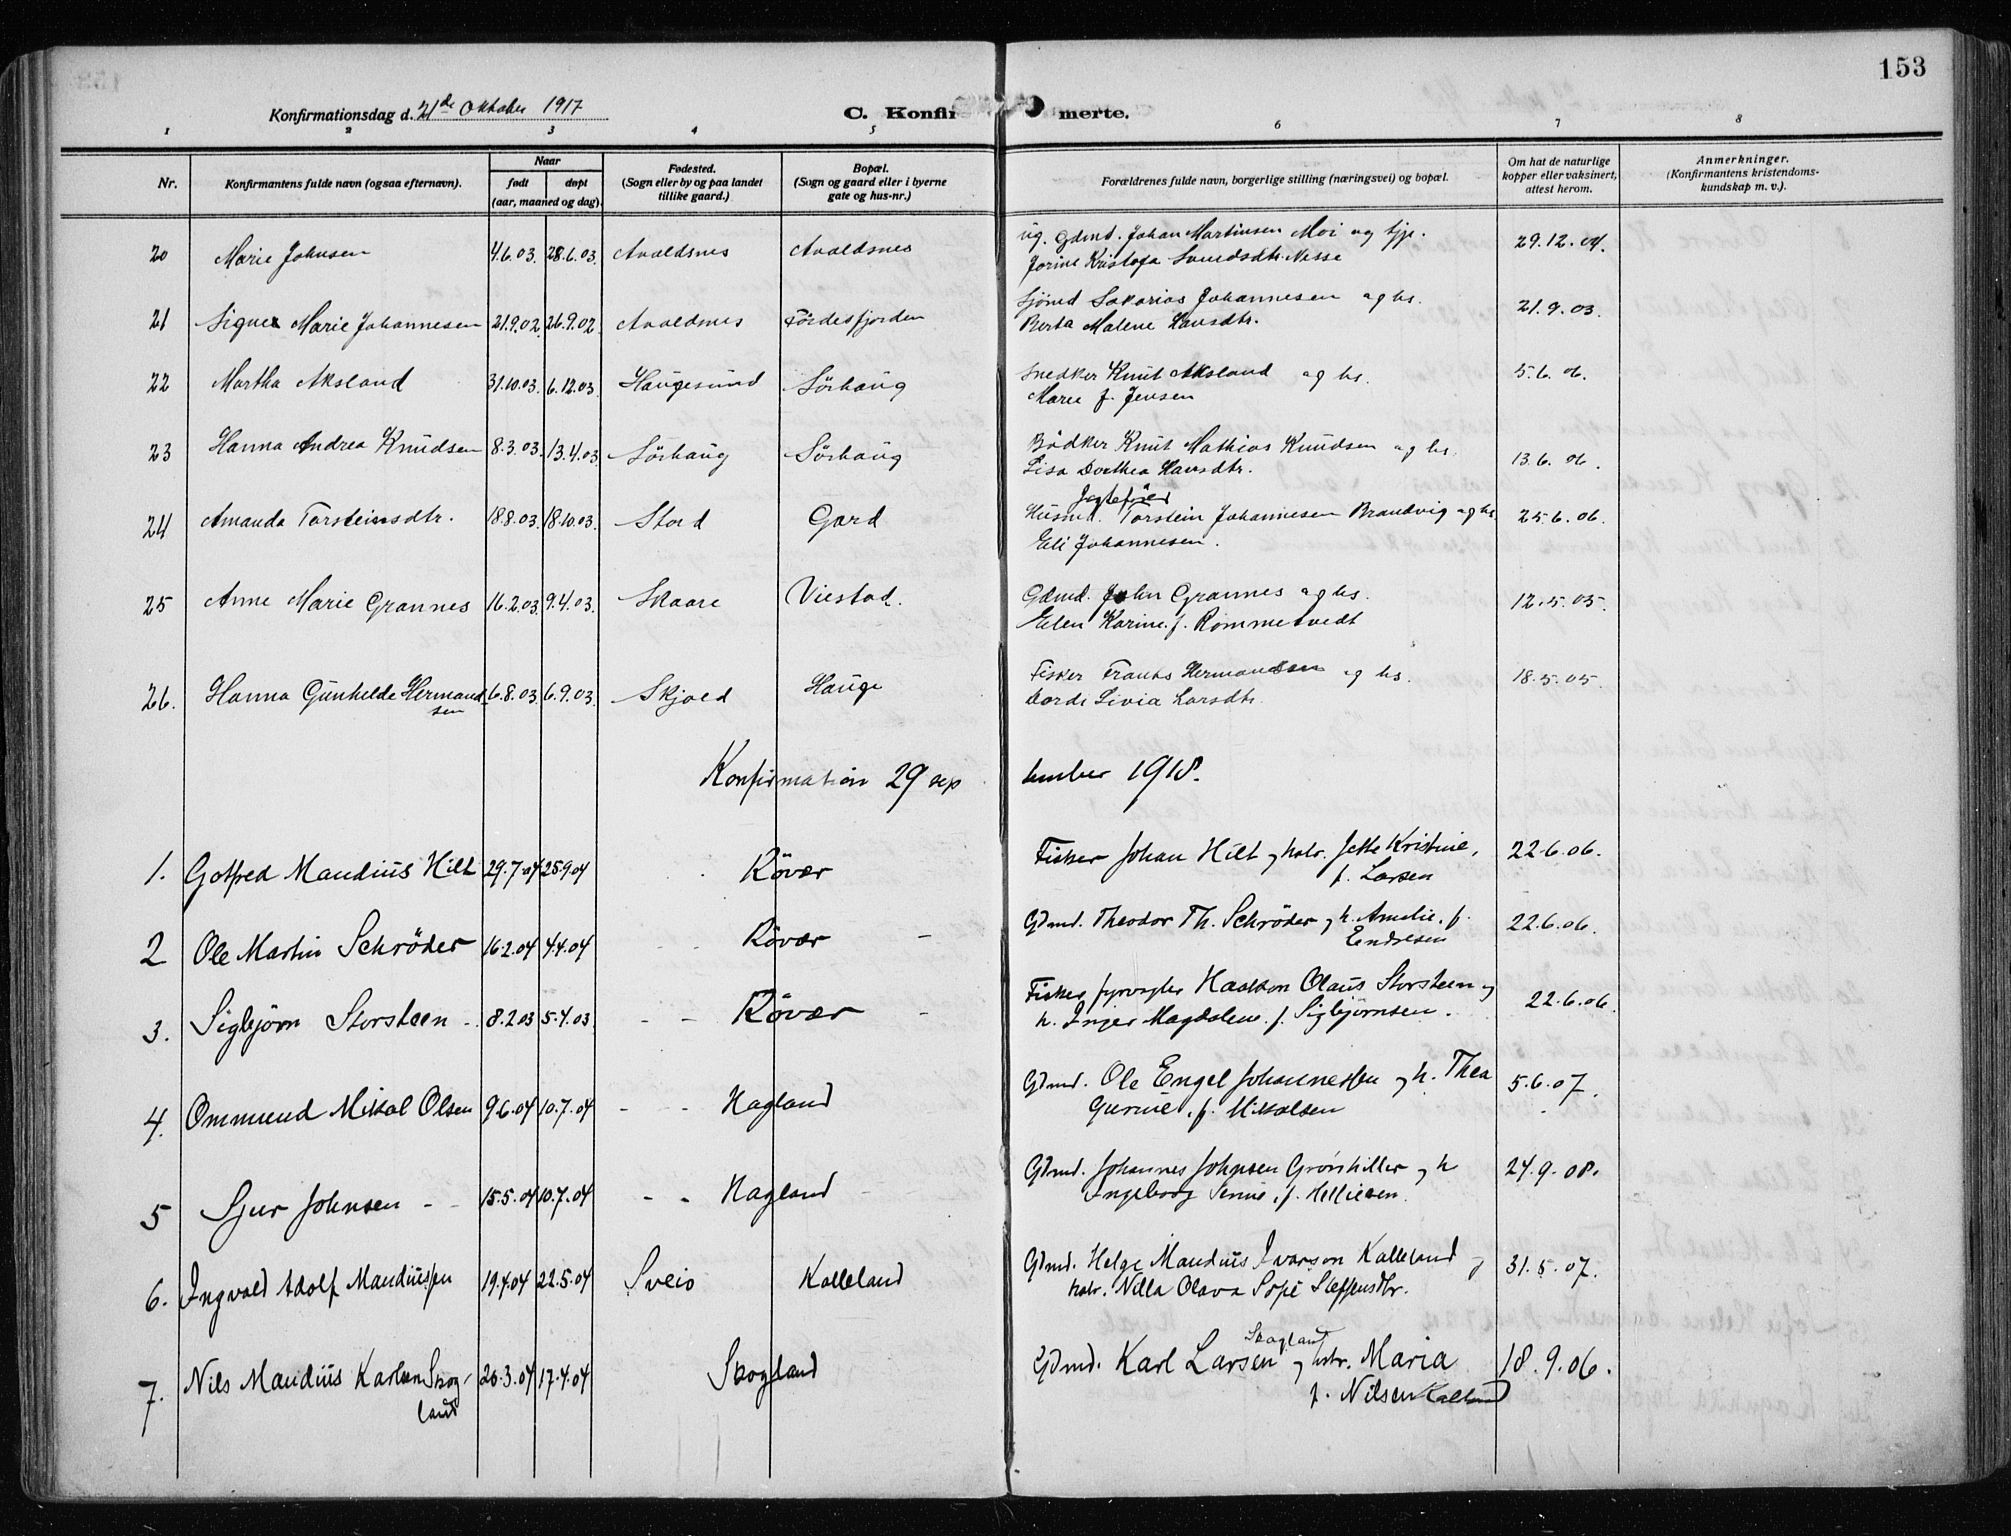 153
Konfirmationsdag d. 21de Oktober 1917 C. Konfirmerte.
1 2 3 4 5 6 7 8
Nr. Konfirmantens fulde navn (ogsaa efternavn). Naar født døpt (aar, maaned og dag). Fødested. (Sogn eller by og paa landet tillike gaard.) Bopæl. (Sogn og gaard eller i byerne gate og hus-nr.) Forældrenes fulde navn, borgerlige stilling (næringsvei) og bopæl. Om hat de naturlige kopper eller vaksinert, attest herom. Anmerkninger. (Konfirmantens kristendomskundskap m. v.).
20 Marie Johnsen 4.6.03. 28.6.03. Avaldsnes Avaldsnes ug. Gdmd. Johan Martinsen Moi og tjp. 29.12.04.
Jorine Kristofa Svendsdtr. Nesse
21 Signe Marie Johannesen 21.9.02. 26.9.02 Avaldsnes Fördesfjorden Sjömd Sakarias Johannesen og hs. 21.9.03.
Berta Malene Hansdtr.
22 Martha Aksland 31.10.03. 6.12.03 Haugesund Sörhaug Snedker Knut Aksland og hs. 5.6.06.
Marie f. Jensen
23 Hanna Andrea Knudsen 8.3.03. 13.4.03. Sörhaug Sörhaug Bödker Knut Mathias Knudsen og hs. 13.6.06.
Lisa Dorthea Hansdtr.
Jagtefører
24 Amanda Torsteinsdtr. 18.8.03. 18.10.03. Stord Gard Husmd. Torstein Johannesen Brandvig og hs. 25.6.06.
Eli Johannesen.
25 Anne Marie Grannes 16.2.03. 9.4.03. Skaare Viestad. Gdmd. John Grannes og hs. 12.5.05.
Elen Karine f. Rommetvedt
26. Hanna Gunhilde Hermand- 6.8.03. 6.9.03. Skjold Hauge Fisker Frants Hermandsen og hs. 18.5.05.
sen Livia Larsdtr.
Konfirmation 29 september 1918.
1. Gotfred Mandius Hilt 29.7.04 25.9.04 Röver Fisker Johan Hilt og hstr. Jette Kristine, 22.6.06.
f. Larsen
2 Ole Martin Schrøder 16.2.04 4.4.04 - - Röver - Gdmd. Theodor Th. Schrøder og h. Amelie, f. 22.6.06.
Endresen
3. Sigbjörn Storsteen - 8.2.03 5.4.03 - - Röver - Fisker, fyrvogter Haakon Olaus Storsteen og 22.6.06.
h. Inger Magdalene f. Sigbjörnsen.
4. Ommund Mikal Olsen 9.6.04 10.7.04 - - Hagland Gdmd. Ole Engel Johannessen og h. Thea 5.6.07.
Gurine, f. Mikalsen
5 Sjur Johnsen - - 15.5.04 10.7.04 - - Hagland - Gdmd. Johannes Johnsen og h 24.9.08.
Ingeborg
6. Ingvald Adolf Mandiussen 19.4.04 22.5.04 Sveio Kalleland Gdmd. Helge Mandius Ivarson Kalleland og 31.5.07.
hstr. Nilla Olava Steffensdtr.
Skogland
7. Nils Mandius Karlsen Skog- 20.3.04 17.4.04 Skogland Gdmd. Karl Larsen og hstr. Maria 18.9.06.
land f. Nilsen Kalland